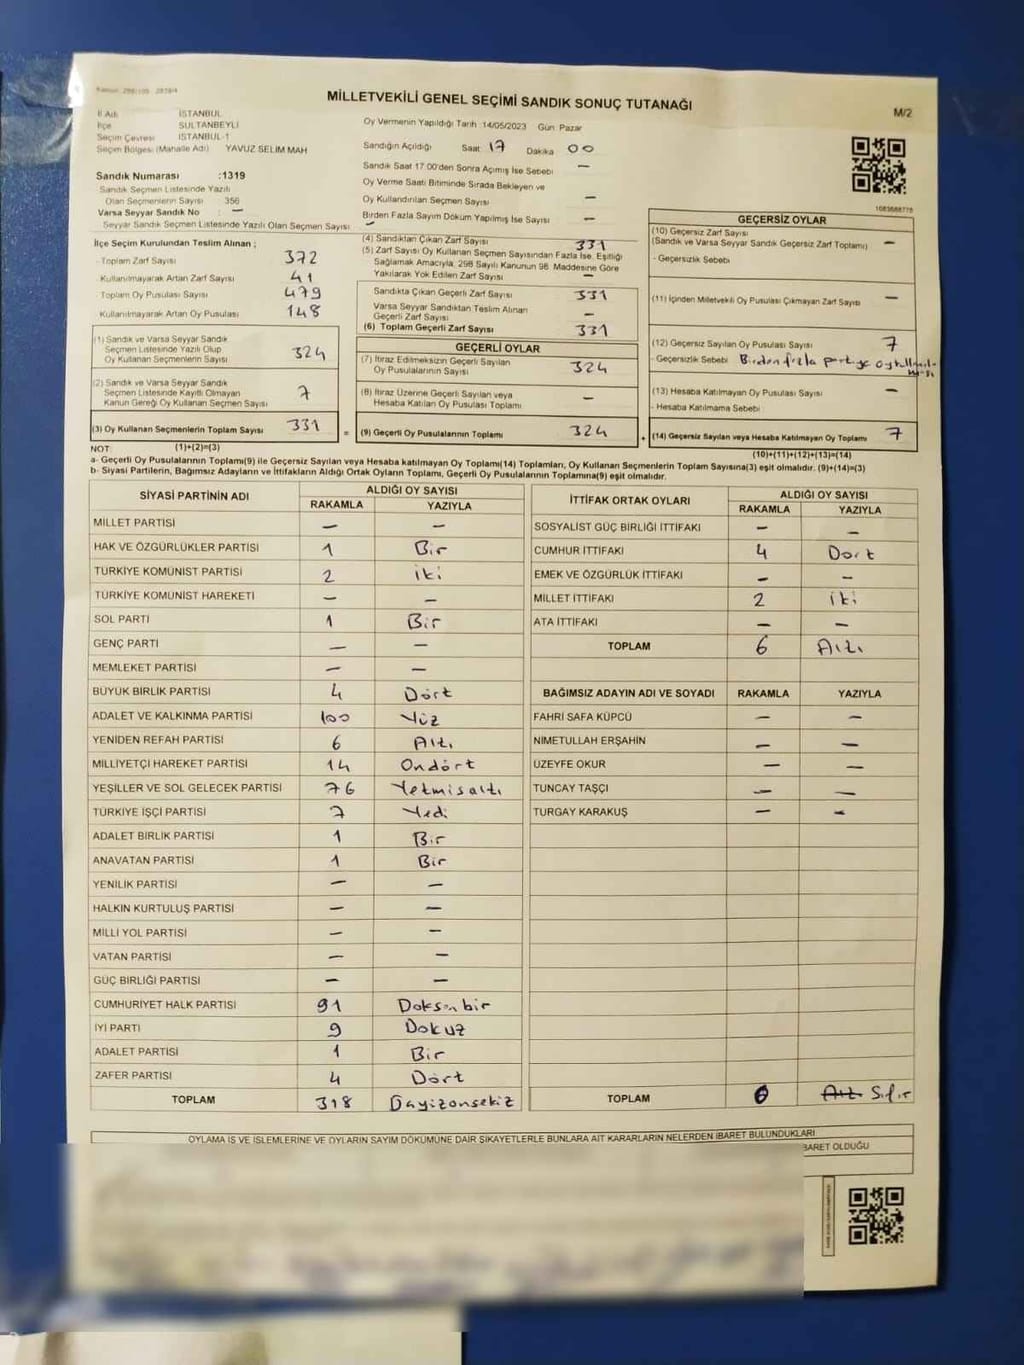 MİLLETVEKİLİ GENEL SEÇİMİ SANDIK SONUÇ TUTANAĞI
M/2
İl Adı : İSTANBUL
İlçe : SULTANBEYLİ
Seçim Çevresi : İSTANBUL-1
Seçim Bölgesi (Mahalle Adı) : YAVUZ SELİM MAH
Oy Vermenin Yapıldığı Tarih :14/05/2023 Gün: Pazar
Sandığın Açıldığı Saat 17 Dakika 00
Sandık Saat 17:00'den Sonra Açılmış İse Sebebi —
Oy Verme Saati Bitiminde Sırada Bekleyen ve
Oy Kullandırılan Seçmen Sayısı —
Birden Fazla Sayım Döküm Yapılmış İse Sayısı —
Sandık Numarası :1319
Sandık Seçmen Listesinde Yazılı
Olan Seçmenlerin Sayısı : 356
Varsa Seyyar Sandık No : —
Seyyar Sandık Listesinde Yazılı Olan Seçmen Sayısı : —
İlçe Seçim Kurulundan Teslim Alınan ;
- Toplam Zarf Sayısı 372
Kullanılmayarak Artan Zarf Sayısı 41
Toplam Oy Pusulası Sayısı 479
Kullanılmayarak Artan Oy Pusulası 148
(1) Sandık ve Varsa Seyyar Sandık
Seçmen Listesinde Yazılı Olup
Oy Kullanan Seçmenlerin Sayısı 324
(2) Sandık ve Varsa Seyyar Sandık
Seçmen Listesinde Kayıtlı Olmayan
Kanun Gereği Oy Kullanan Seçmen Sayısı 7
(3) Oy Kullanan Seçmenlerin Toplam Sayısı 331
(4) Sandıktan Çıkan Zarf Sayısı 331
(5) Zarf Sayısı Oy Kullanan Seçmen Sayısından Fazla İse, Eşitliği
Sağlamak Amacıyla, 298 Sayılı Kanunun 98. Maddesine Göre
Yakılarak Yok Edilen Zarf Sayısı —
Sandıkta Çıkan Geçerli Zarf Sayısı 331
Varsa Seyyar Sandıktan Teslim Alınan
Geçerli Zarf Sayısı —
(6) Toplam Geçerli Zarf Sayısı 331
GEÇERLİ OYLAR
(7) İtiraz Edilmeksizin Geçerli Sayılan
Oy Pusulalarının Sayısı 324
(8) İtiraz Üzerine Geçerli Sayılan veya
Hesaba Katılan Oy Pusulası Toplamı —
= (9) Geçerli Oy Pusulalarının Toplamı 324
1083688778
GEÇERSİZ OYLAR
(10) Geçersiz Zarf Sayısı
(Sandık ve Varsa Seyyar Sandık Geçersiz Zarf Toplamı) —
- Geçersizlik Sebebi :
(11) İçinden Milletvekili Oy Pusulası Çıkmayan Zarf Sayısı —
(12) Geçersiz Sayılan Oy Pusulası Sayısı 7
- Geçersizlik Sebebi : Birden fazla partiye
(13) Hesaba Katılmayan Oy Pusulası Sayısı —
- Hesaba Katılmama Sebebi :
+ (14) Geçersiz Sayılan veya Hesaba Katılmayan Oy Toplamı 7
NOT: (1)+(2)=(3)
(10)+(11)+(12)+(13)=(14)
a- Geçerli Oy Pusulalarının Toplamı(9) ile Geçersiz Sayılan veya Hesaba katılmayan Oy Toplamı(14) Toplamları, Oy Kullanan Seçmenlerin Toplam Sayısına(3) eşit olmalıdır. (9)+(14)=(3)
b- Siyasi Partilerin, Bağımsız Adayların ve İttifakların Aldığı Ortak Oyların Toplamı, Geçerli Oy Pusulalarının Toplamına(9) eşit olmalıdır.
SİYASİ PARTİNİN ADI ALDIĞI OY SAYISI
RAKAMLA YAZIYLA
MİLLET PARTİSİ — —
HAK VE ÖZGÜRLÜKLER PARTİSİ 1 Bir
TÜRKİYE KOMÜNİST PARTİSİ 2 iki
TÜRKİYE KOMÜNİST HAREKETİ — —
SOL PARTİ 1 Bir
GENÇ PARTİ — —
MEMLEKET PARTİSİ — —
BÜYÜK BİRLİK PARTİSİ 4 Dört
ADALET VE KALKINMA PARTİSİ 100 Yüz
YENİDEN REFAH PARTİSİ 6 Altı
MİLLİYETÇİ HAREKET PARTİSİ 14 Ondört
YEŞİLLER VE SOL GELECEK PARTİSİ 76 Yetmisaltı
TÜRKİYE İŞÇİ PARTİSİ 7 Yedi
ADALET BİRLİK PARTİSİ 1 Bir
ANAVATAN PARTİSİ 1 Bir
YENİLİK PARTİSİ — —
HALKIN KURTULUŞ PARTİSİ — —
MİLLİ YOL PARTİSİ — —
VATAN PARTİSİ — —
GÜÇ BİRLİĞİ PARTİSİ — —
CUMHURİYET HALK PARTİSİ 91 Doksanbir
İYİ PARTİ 9 Dokuz
ADALET PARTİSİ 1 Bir
ZAFER PARTİSİ 4 Dört
TOPLAM 318
İTTİFAK ORTAK OYLARI ALDIĞI OY SAYISI
RAKAMLA YAZIYLA
SOSYALİST GÜÇ BİRLİĞİ İTTİFAKI — —
CUMHUR İTTİFAKI 4 Dört
EMEK VE ÖZGÜRLÜK İTTİFAKI — —
MİLLET İTTİFAKI 2 iki
ATA İTTİFAKI — —
TOPLAM 6 Altı
BAĞIMSIZ ADAYIN ADI VE SOYADI RAKAMLA YAZIYLA
FAHRİ SAFA KÜPCÜ — —
NİMETULLAH ERŞAHİN — —
ÜZEYFE OKUR — —
TUNCAY TAŞÇI — —
TURGAY KARAKUŞ — —
TOPLAM 0 Altı Sıfır
OYLAMA İŞ VE İŞLEMLERİNE VE OYLARIN SAYIM DÖKÜMÜNE DAİR ŞİKAYETLERLE BUNLARA AİT KARARLARIN NELERDEN İBARET BULUNDUKLARI
BARET OLDUĞU